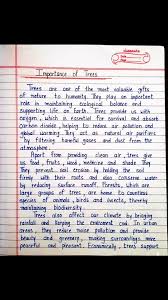 Importance of Trees
Trees are one of the most valuable gifts
of nature to humanity. They play an important
role in maintaining ecological balance and
supporting life on Earth. Trees provide us with
oxygen, which is essential for survival and absorb
carbon dioxide, helping to reduce air pollution and
global warming. They act as natural air purifiers
by filtering harmful gases and dust from the
atmosphere.
Apart from providing clean air, trees give
us food, fruits, wood, medicine and shade. They
They prevent soil erosion by holding the soil
firmly with their roots and also conserve water
by reducing surface runoff. Forests, which are
large groups of trees, are home to countless
species of animals, birds and insects, thereby
maintaining biodiversity.
Trees also affect our climate by bringing
rainfall and keeping the environment cool. In urban
areas, they reduce noise pollution and provide
beauty and greenery, making surroundings more
peaceful and pleasant. Economically, trees support